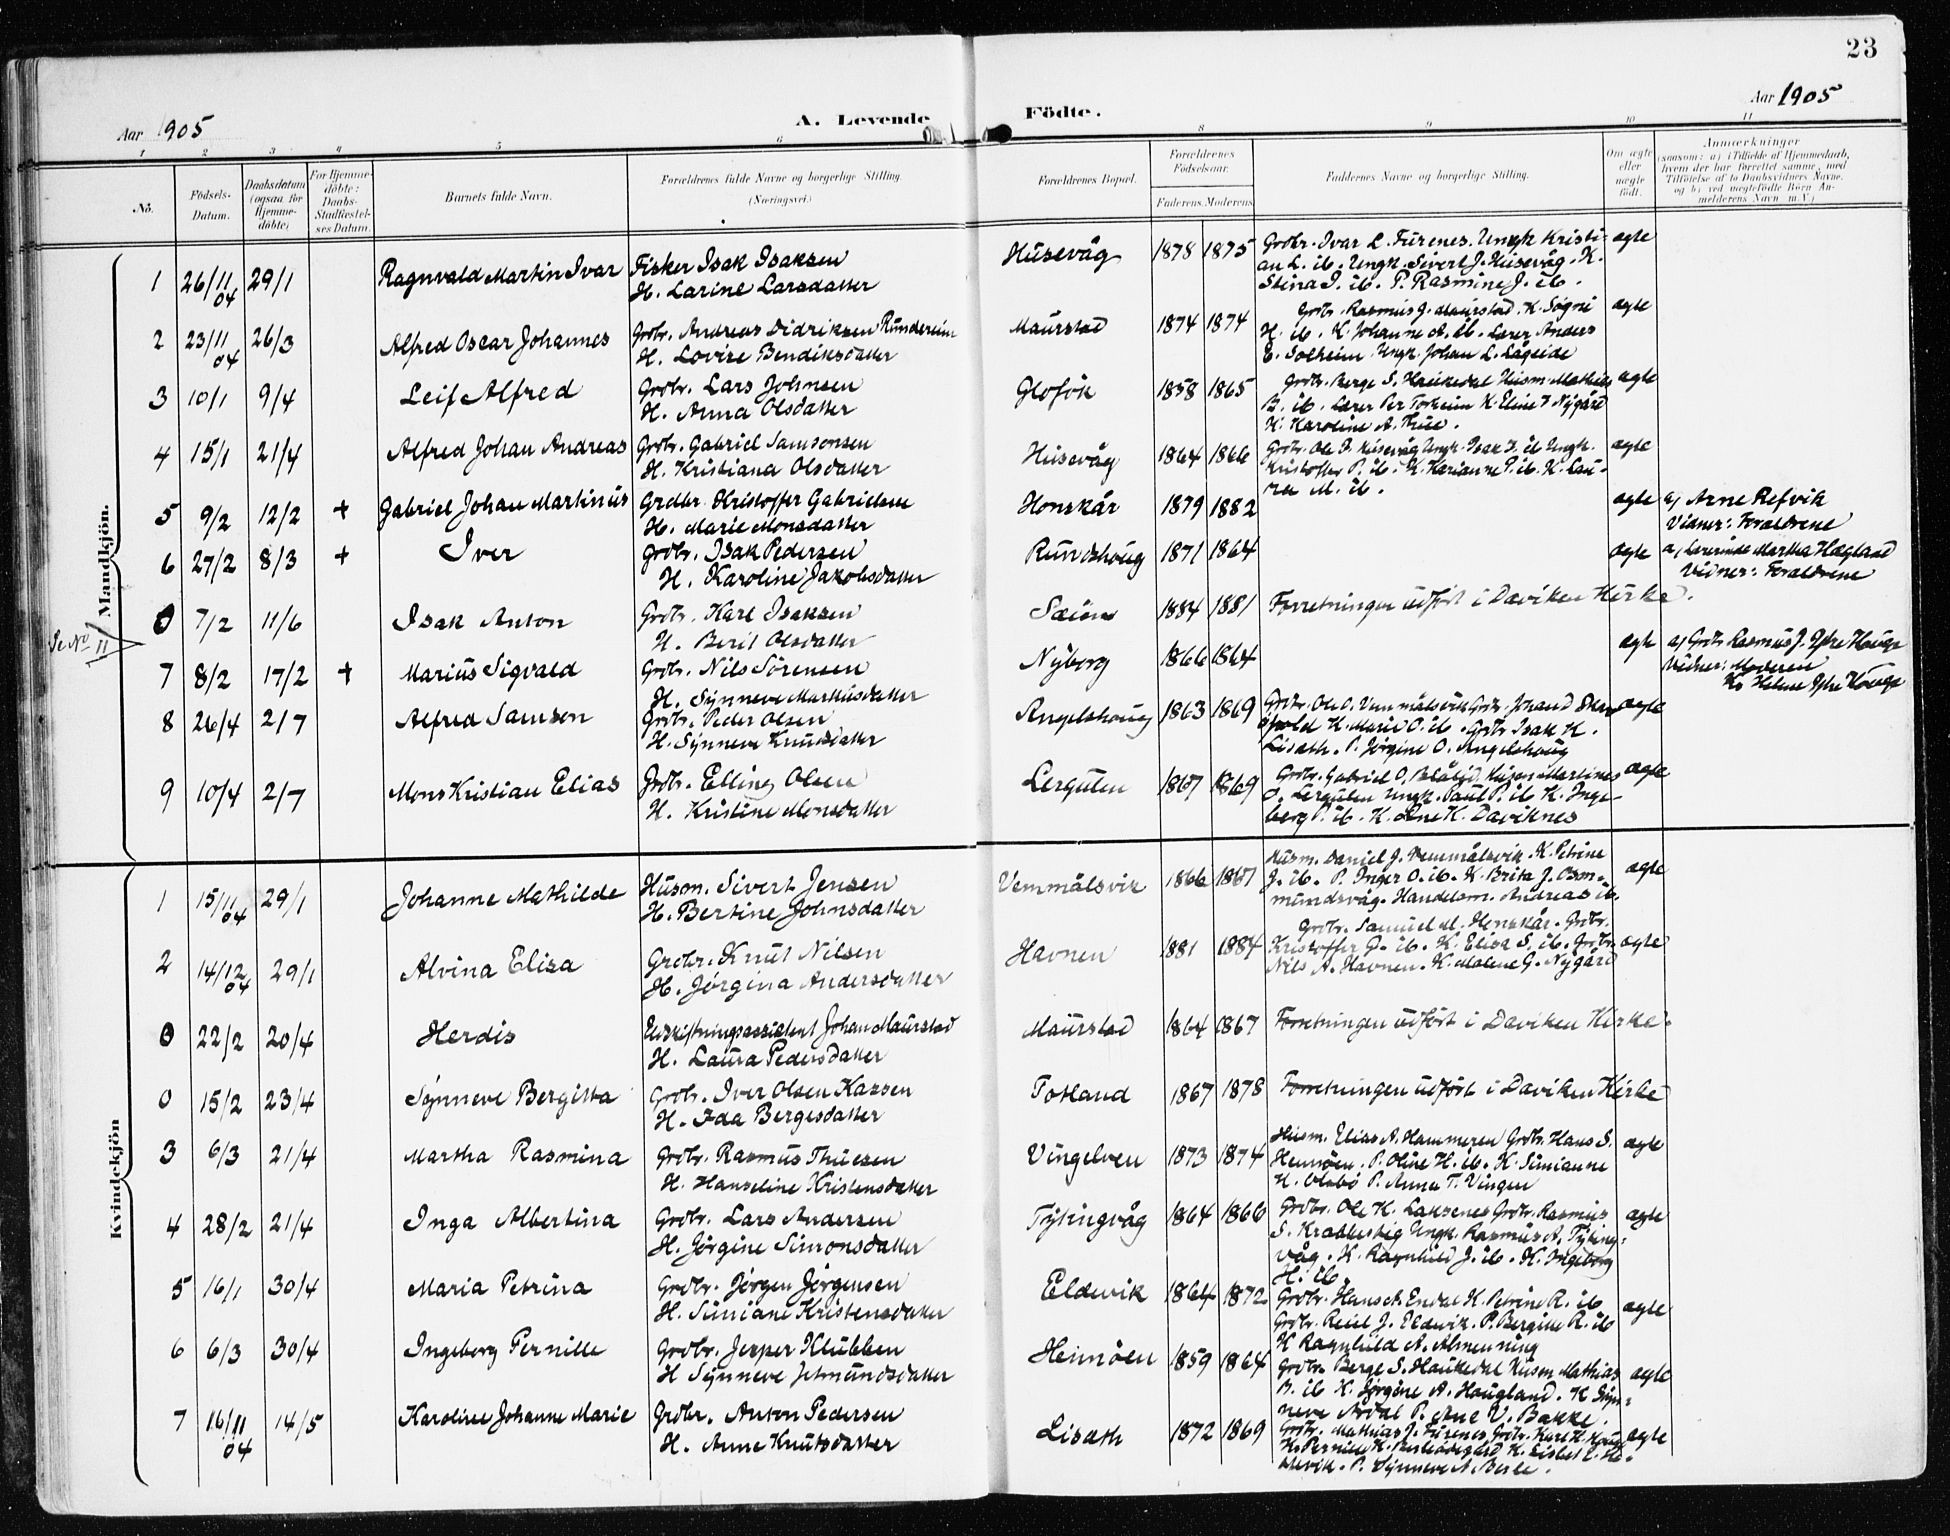 23
Aar 1905
A. Levende
Födte.
Aar 1905
1 2 3 4 5 6 8 9 10 11
Nö.
Födsels-Datum.
Daabsdatum (ogsaa for Hjemmedöbte)
For Hjemmedöbte: Daabs-Stadfæstelses Datum.
Barnets fulde Navn.
Forældrenes fulde Navne og borgerlige Stilling.
(Næringsvei.)
Forældrenes Bopæl.
Forældrenes Födselsaar.
Faderens. Moderens.
Faddernes Navne og borgerlige Stilling.
Om ægte eller uægte födt.
Anmærkninger
(saasom: a) i Tilfælde af Hjemmedaab, hvem der har forrettet samme, med Tilföielse af to Daabsvidners Navne, og b) ved uægtefödte Börn Anmelderens Navn m.V.)
Mandkjön.
1 26/11 04 29/1 Ragnvald Martin Ivar Fisker Isak Isaksen Husevåg 1878 1875 Grdbr. Ivar L. Furenes. Ungk Kristi- ægte
H. Larine Larsdatter an L. ib. Ungk. Sivert J. Husevåg. K.
Stina I. ib. P. Rasmine J. ib.
2 23/11 04 26/3 Alfred Oscar Johannes Grdbr. Andreas Didriksen Rundereim Maurstad 1874 1874 Grdbr. Rasmus J. Maurstad. K. Søgni ægte
H. Lovise Bendiksdatter H. ib. K. Johanne A. ib. Lærer Anders
E. Solheim. Ungk. Johan L. Lågeide
3 10/1 9/4 Leif Alfred Grdbr. Lars Johnsen Gloføk 1858 1865 Grdbr. Berge S. Haukedal Husm Mathias ægte
H. Anna Olsdatter B. ib. Lærer Per Torheim K. Eline T Nygård
K. Karoline A. Thue.
4 15/1 21/4 Alfred Johan Andreas Grdbr. Gabriel Samsonsen Husevåg 1864 1866 Grdbr. Ole I. Husevåg Ungk. Isak I. ib Ungk. ægte
H. Kristiana Olsdatter Kristoffer P. ib. K. Karianne P. ib. K. Lau-
ra M. ib.
5 9/2 12/2 + Gabriel Johan Martinus Grdbr. Kristoffer Gabrielsen Henskår 1879 1882 ægte a) Arne Refvik
H. Marie Monsdatter Vidner: Forældrene
6 27/2 8/3 + Iver Grdbr. Isak Pedersen Rundshoug 1871 1864 ægte a) Lærerinde Martha Hagland
H. Karoline Jakobsdatter Vidner: Forældrene
0 7/2 11/6 Isak Anton Grdbr. Karl Isaksen 1884 1881 Forretningen udført i Daviken Kirke.
H. Berit Olsdatter
Se No 11
7 8/2 17/2 + Marius Sigvald Grdbr. Nils Sørensen Nyborg 1866 1864 ægte a) Grdbr Rasmus J. Ytre Hauge
H. Synneve Markusdatter Vidner: Moderen
K. Helene Ytre Hauge
8 26/4 2/7 Alfred Samson Grdbr. Peder Olsen Angelshoug 1863 1869 Grdbr. Ole O. Vemmålsvik Grdbr. Johan D ægte
H. Synneve Knutsdatter K. Marie O. ib. Grdbr Isak K.
Lisæth. P. Jørgine O. Angelshoug
9 10/4 2/7 Mons Kristian Elias Grdbr. Elling Olsen Lerguten 1867 1869 Grdbr. Gabriel O. Blålid. Husm Martines ægte
H. Kristine Monsdatter O. Lerguten Ungk. Paul P. ib K. Inge-
berg P. ib. K. Lene K. Daviknes
Kvindekjön
1 15/11 04 29/1 Johanne Mathilde Husm. Sivert Jensen Vemmålsvik 1866 1867 Husm. Daniel J. Vemmålsvik. K. Petrine ægte
H. Bertine Johnsdatter J. ib. P. Inger O. ib. K. Brita J. Osm-
mundsvåg. Handelsm. Andreas ib.
2 14/12 04 29/1 Alvina Elisa Grdbr. Knut Nilsen Havnen 1881 1884 Grdbr. Samuel M. Henskår. Grdbr. ægte
H. Jørgina Andersdatter Kristoffer G. ib. K. Elisa S. ib. Grdbr.
Nils A. Havnen. K. Malene G. Nygård
0 22/2 20/4 Herdis Udskiftningsassistent Johan Maurstad Maurstad 1864 1867 Forretningen udført i Daviken Kirke.
H. Laura Pedersdatter
0 15/2 23/4 Synneve Bergitta Grdbr. Iver Olsen Kassen Totland 1867 1878 Forretningen udført i Daviken Kirke
H. Ida Bergesdatter
3 6/3 21/4 Martha Rasmina Grdbr. Rasmus Thuesen Vingelven 1873 1874 Husm. Elias A. Hammeren Grdbr. Hans S. ægte
H. Hanseline Kristensdatter Hennøen. P. Oline H. ib. K. Simianne
H. Olsbø P. Anna T. Vingen
4 28/2 21/4 Inga Albertina Grdbr. Lars Andersen Tytingvåg 1864 1866 Grdbr. Ole K. Laksenes Grdbr. Rasmus ægte
H. Jørgine Simonsdatter S. Krabbestig Ungk. Rasmus A. Tyting-
våg. K. Ragnhild J. ib. K. Ingeborg
H. ib.
5 16/1 30/4 Maria Petrina Grdbr. Jørgen Jørgensen Eldevik 1864 1872 Grdbr. Hans A. Endal K. Petrine R. ib. ægte
H. Simiane Kristensdatter Grdbr. Reiel J. Eldevik. P. Bergitte R. ib
K Ragnhild A. Almenning
6 6/3 30/4 Ingeborg Pernille Grdbr. Jesper Klubben Hennøen 1859 1864 Grdbr. Berge S. Haukedal Husm Mathias ægte
H Synneve Jetmundsdatter B. ib K. Jørgine A. Haugland. K Syn-
neve Årdal P. Ane V. Bakke.
7 16/11 04 14/5 Karoline Johanne Marie Grdbr. Anton Pedersen Lisæth 1872 1869 Grdbr. Mathias J. Furenes Grdbr. Karl K. Hauge ægte
H. Anne Knutsdatter K. Pernille K. K. Lisbet E.
P. Synneve A. Berle.